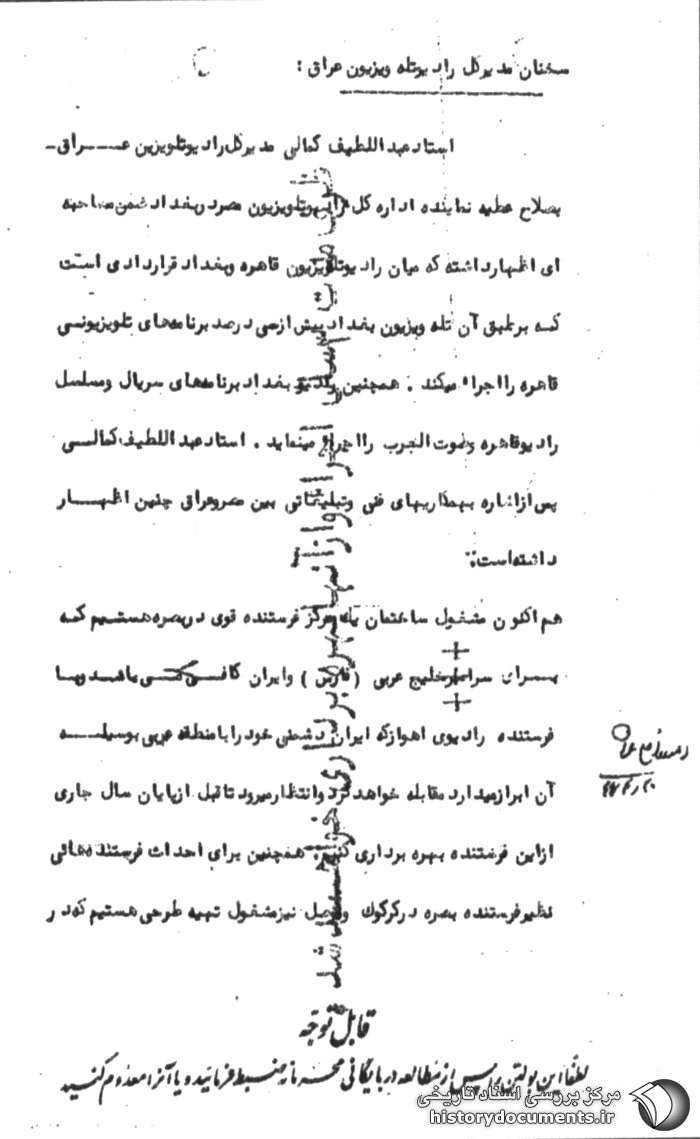 سخنان مدیرکل رادیوتله ویزیون عراق :
استاد عبداللطیف کمالی مدیرکل رادیوتلویزین عراق
بصلاح عطیه نماینده اداره کل رادیوتلویزیون مصر در بغداد ضمن مصاحبه
ای اظهار داشته که میان رادیوتلویزیون قاهره و بغداد قراردادی است
که برطبق آن تله ویزیون بغداد بیش از سی درصد برنامه‌های تلویزیونی
قاهره را اجراء میکند . همچنین رادیو بغداد برنامه‌های سریال و مسلسل
رادیو قاهره وصوت العرب را اجراء مینماید . استاد عبداللطیف کمالی
پس از اشاره بهمکاریهای فنی وتبلیغاتی بین مصر وعراق چنین اظهار
داشته است :
هم اکنون مشغول ساختمان یک مرکز فرستنده قوی در بصره هستیم که
برای سراسر خلیج عربی ( فارس ) وایران کافی میباشد وبا
فرستنده رادیوی اهواز که ایران دشمنی خود را با منطقه عربی بوسیله
آن ابراز میدارد مقابله خواهد کرد وانتظار میرود تا قبل از پایان سال جاری
از این فرستنده بهره برداری کنیم . همچنین برای احداث فرستنده‌هائی
نظیر فرستنده بصره در کرکوک وموصل نیز مشغول تهیه طرحی هستیم که در
قابل توجه
لطفاً این بولتن را پس از مطالعه در بایگانی محرمانه ضبط فرمائید و یا آنرا معدوم کنید
مرکز بررسی اسناد تاریخی
historydocuments.ir